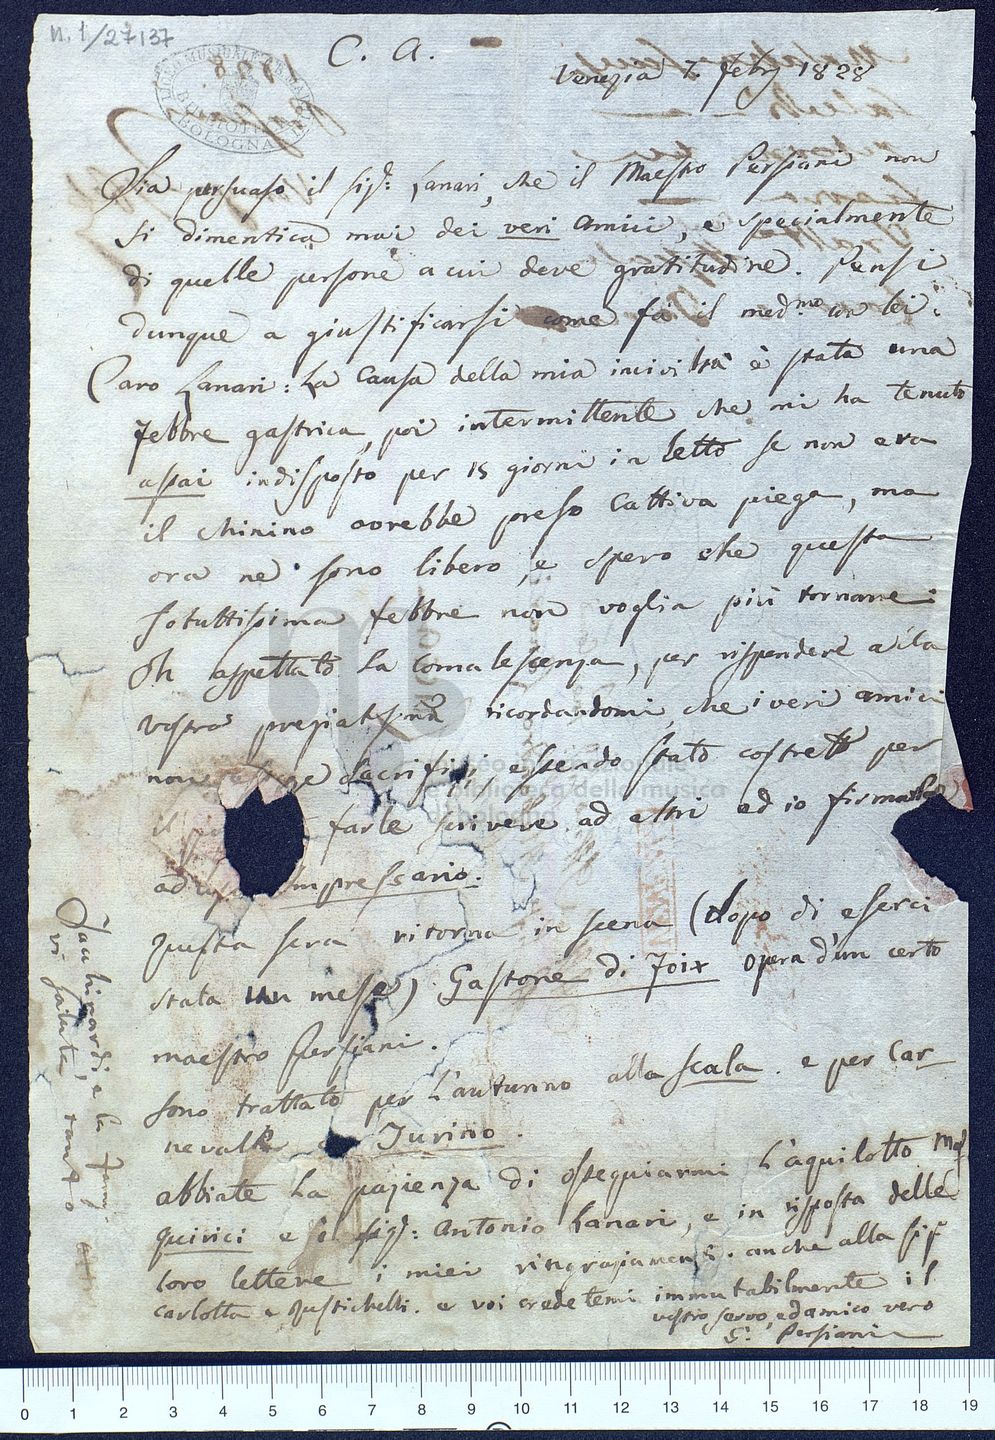 n. 1/27137
C. A.
Venezia 7. Feb.y 1828
Sia persuaso il Sig.r: Lanari, che il Maestro Persiani non
si dimentica mai dei veri amici, e specialmente
di quelle persone a cui deve gratitudine. Pensi
dunque a giustificarsi come fa il med.mo con lei.
Caro Lanari: La Causa della mia inciviltà è stata una
Febbre gastrica, poi intermittente che mi ha tenuto
assai indisposto per 15 giorni in letto se non era
il chinino avrebbe preso Cattiva piega, ma
ora ne sono libero, e spero che questa
fotuttissima febbre non voglia più tornare:
Oh aspettato la comalescenza, per rispondere alla
vostra pregiatissma ricordandomi, che i veri amici
non sacrifizi, essendo stato costretto per
il farle scrivere ad altri ed io firmarla
ad Impressario.
Questa sera ritorna in scena (dopo di eserci
stata un mese) Gastone di Foix opera d'un certo
maestro Persiani.
Sono trattato per L'autunno alla scala. e per Car
nevalle a Turino.
abbiate La pazienza di ossequiarmi L'aquilotto
Quirici e il Sig.r: Antonio Lanari, e in risposta delle
loro lettere i miei ringraziamenti. anche alla Sig.r
Carlotta e Gustichelli. e voi credetemi immutabilmente il
vostro servo, ed amico vero
G: Persiani
Tachinardi, e la Fam.
vi saluta, tanto
MUSICALE
BOLOGNA
museo internazionale
e biblioteca della musica
di bologna
0 1 2 3 4 5 6 7 8 9 10 11 12 13 14 15 16 17 18 19